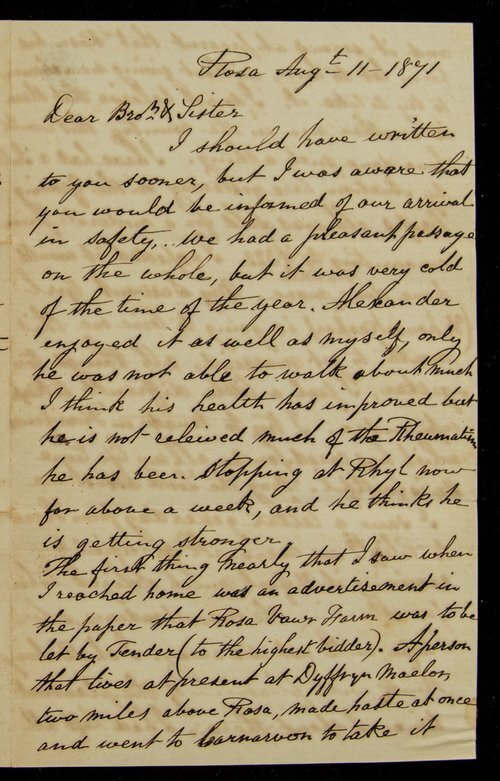 Rosa Augt 11 - 1871
Dear Bror & Sister
I should have written
to you sooner, but I was aware that
you would be informed of our arrival
in safety, .. we had a pleasant passage
on the whole, but it was very cold
of the time of the year. Alexander
enjoyed it as well as myself, only
he was not able to walk about much
I think his health has improved but
he is not releived much of the Rheumatism
he has been. Stopping at Rhyl now
for above a week, and he thinks he
is getting stronger.
The first thing nearly that I saw when
I reached home was an advertisement in
the paper that Rosa Vawr Farm was to be
let by Tender (to the highest bidder). A person
that lives at present at Dyffryn Maelon
two miles above Rosa, made haste at once
and went to Carnarvon to take it